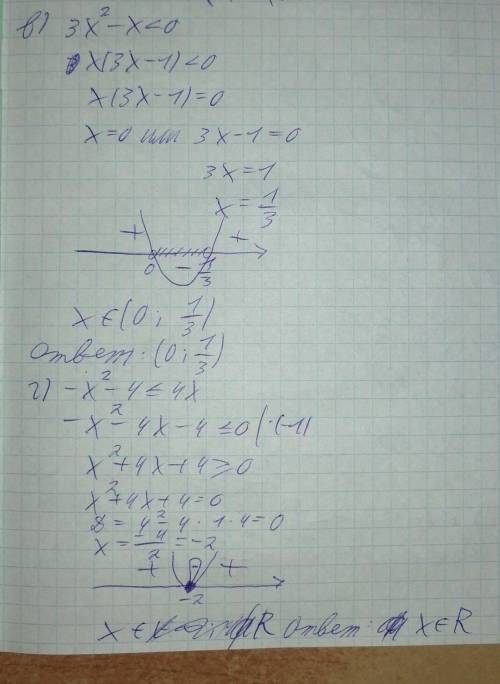 в) 3x² - x < 0
x(3x-1) < 0
x(3x-1) = 0
x = 0 или 3x-1 = 0
3x = 1
x = 1/3
+ - +
0 1/3
x ∈ (0; 1/3)
Ответ: (0; 1/3)
г) -x² - 4 ≤ 4x
-x² - 4x - 4 ≤ 0 | ·(-1)
x² + 4x + 4 ≥ 0
x² + 4x + 4 = 0
D = 4² - 4 · 1 · 4 = 0
x = -4/2 = -2
+ +
-2
x ∈ R Ответ: x ∈ R